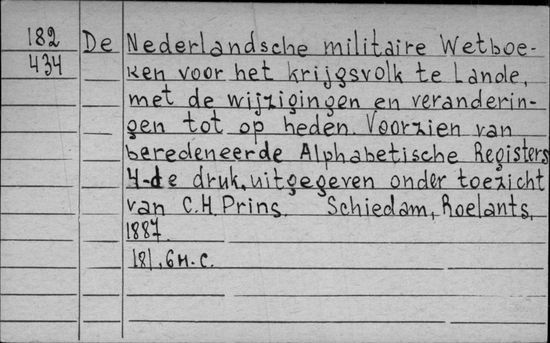 182 De Nederlandsche militaire Wetboe-
434 ken voor het krijgsvolk te Lande,
met de wijzigingen en veranderin-
gen tot op heden. Voorzien van
beredeneerde Alphabetische Registers
4-de druk, uitgegeven onder toezicht
van C.H. Prins. Schiedam, Roelants,
1887.
181, 6 н. с.